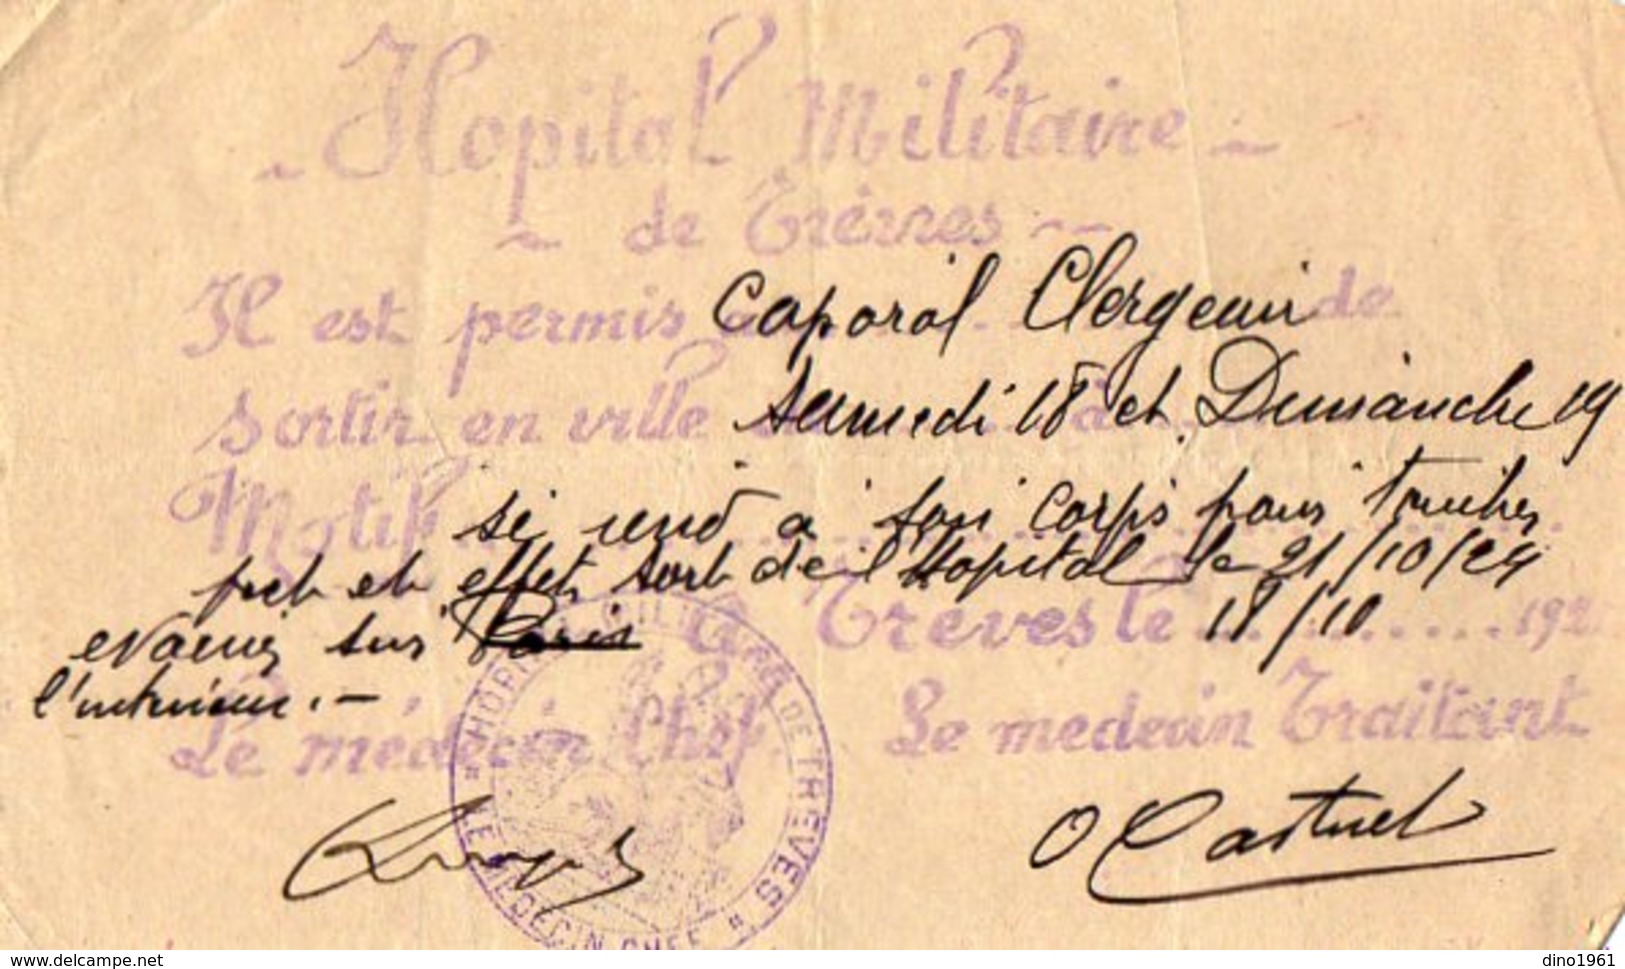 Hopital Militaire
de Trèves
Il est permis à Caporal Clergeau de
sortir en ville Samedi 18 et Dimanche 19
Motif se rend à son corps pour toucher
pret et effets sort de l'Hopital le 21/10/24
évacué sur Paris
l'intérieur.-
A Trèves le 18/10 192
Le médecin Chef. Le medecin Traitant
O Castuel
HOPITAL MILITAIRE DE TREVES
LE MEDECIN CHEF
www.delcampe.net
dino1961